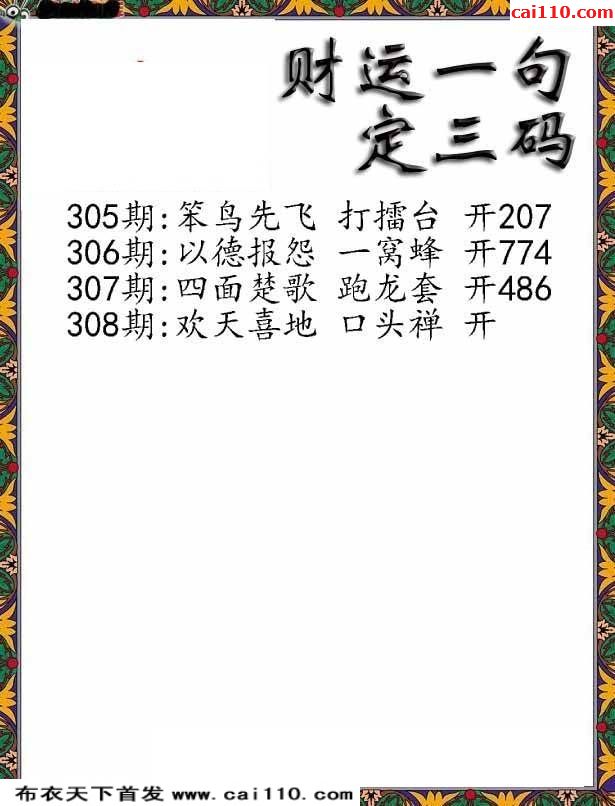 cai110.com
财运一句
定三码
305期:笨鸟先飞 打擂台 开207
306期:以德报怨 一窝蜂 开774
307期:四面楚歌 跑龙套 开486
308期:欢天喜地 口头禅 开
布衣天下首发 www.cai110.com